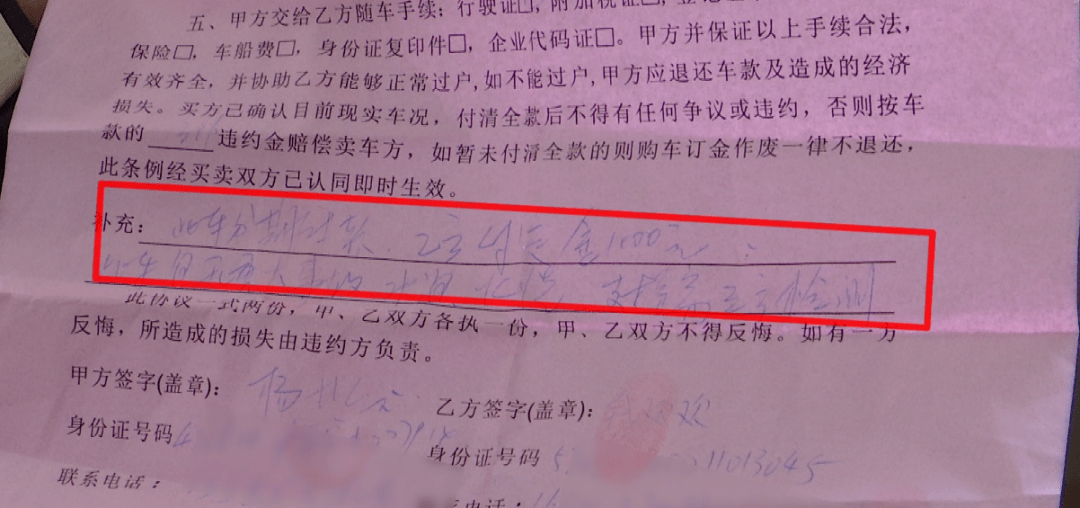 五、甲方交给乙方随车手续：行驶证□，附加税证□，登记
保险□，车船费□，身份证复印件□，企业代码证□。甲方并保证以上手续合法，
有效齐全，并协助乙方能够正常过户，如不能过户，甲方应退还车款及造成的经济
损失。买方已确认目前现实车况，付清全款后不得有任何争议或违约，否则按车
款的 违约金赔偿卖车方，如暂未付清全款的则购车订金作废一律不退还，
此条例经买卖双方已认同即时生效。
补充：此车分期付款 乙方付定金1000元
此车 无重大事故 水泡 火烧 支持第三方检测
此协议一式两份，甲、乙双方各执一份，甲、乙双方不得反悔。如有一方
反悔，所造成的损失由违约方负责。
甲方签字(盖章)：杨
乙方签字(盖章)：双欢
身份证号码4
身份证号码5 11013045
联系电话：
系电话：16